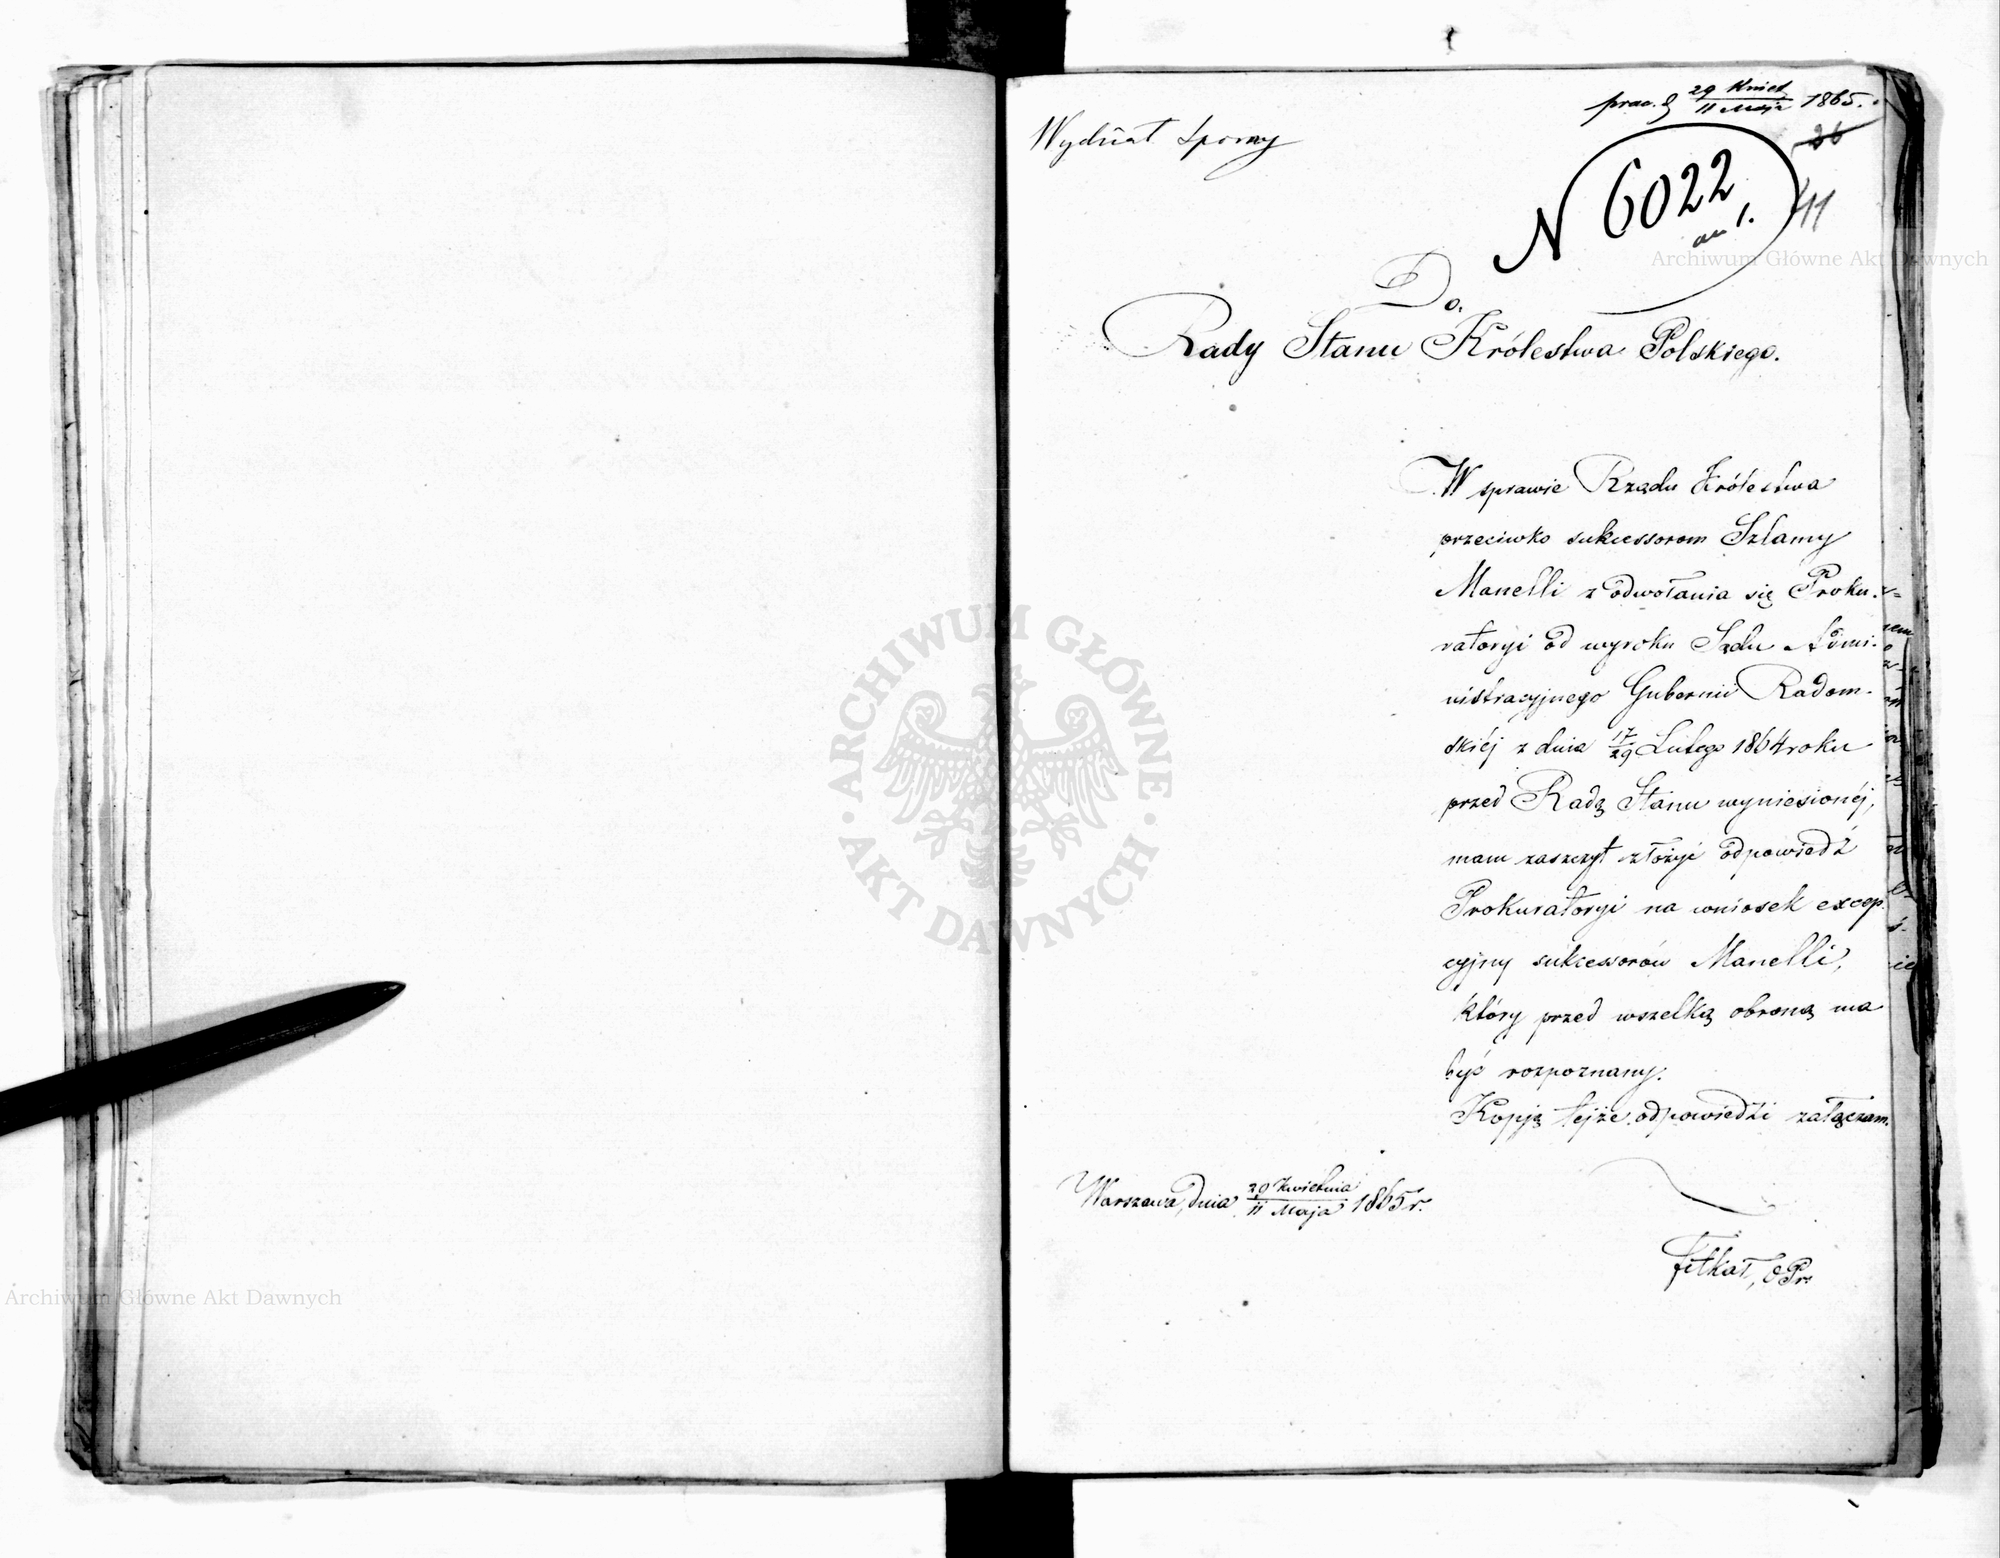 Wydział Sporny
29 Kwiet
11 Maja 1865.
26
N 6022
41
Do.
Rady Stanu Królestwa Polskiego.
W sprawie Rządu Królestwa
przeciwko sukcessorom Szlamy
Manelli z odwołania się Proku-
ratoryi od wyroku Sądu Admi-
nistracyjnego Gubernii Radom-
skiéj z dnia 17/29 Lutego 1864 roku
przed Radą Stanu wyniesionéj,
mam zaszczyt złożyć odpowiedź
Prokuratoryi na wniosek excep-
cyjny sukcessorów Manelli,
który przed wszelką obroną ma
być rozpoznany.
Kopją tejże odpowiedzi załączam.
Warszawa, dnia 29 Kwietnia
11 Maja 1865 r.
ARCHIWUM GŁÓWNE AKT DAWNYCH
Archiwum Główne Akt Dawnych
Archiwum Główne Akt Dawnych